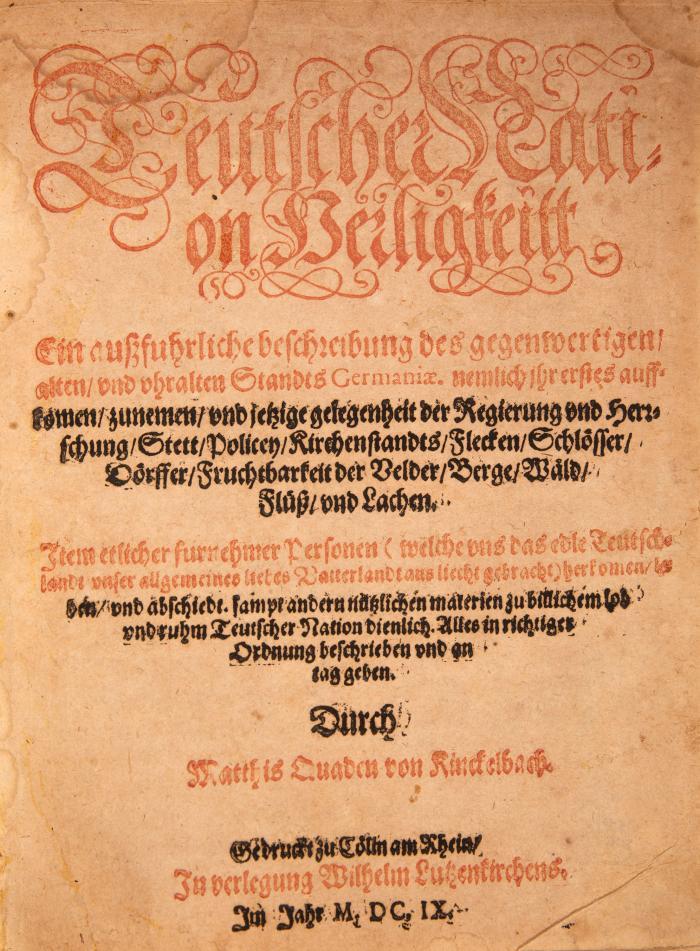 Teutscher Nati-
on Herligkeitt
Ein außfuhrliche beschreibung des gegenwertigen/
alten/ vnd vhralten Standts Germaniæ. nemlich ihr erstes auff-
komen/ zunemen/ vnd jetzige gelegenheit der Regierung vnd Herr-
schung/ Stett/ Policey/ Kirchenstandts/ Flecken/ Schlösser/
Dörffer/ Fruchtbarkeit der Velder/ Berge/ Wäld/
Flüß/ vnd Lachen.
Item etlicher furnehmer Personen ( welche vns das edle Teutsch-
landt vnser allgemeines liebes Vatterlandt ans liecht gebracht) herkomen/ le-
ben/ vnd abschiedt. sampt andern nützlichen materien zu billichem lob
vnd ruhm Teutscher Nation dienlich. Alles in richtiger
Ordnung beschrieben vnd an
tag geben.
Durch
Matthis Quaden von Kinckelbach.
Gedruckt zu Cölln am Rhein/
In verlegung Wilhelm Lutzenkirchens.
Im Jahr M. DC. IX.